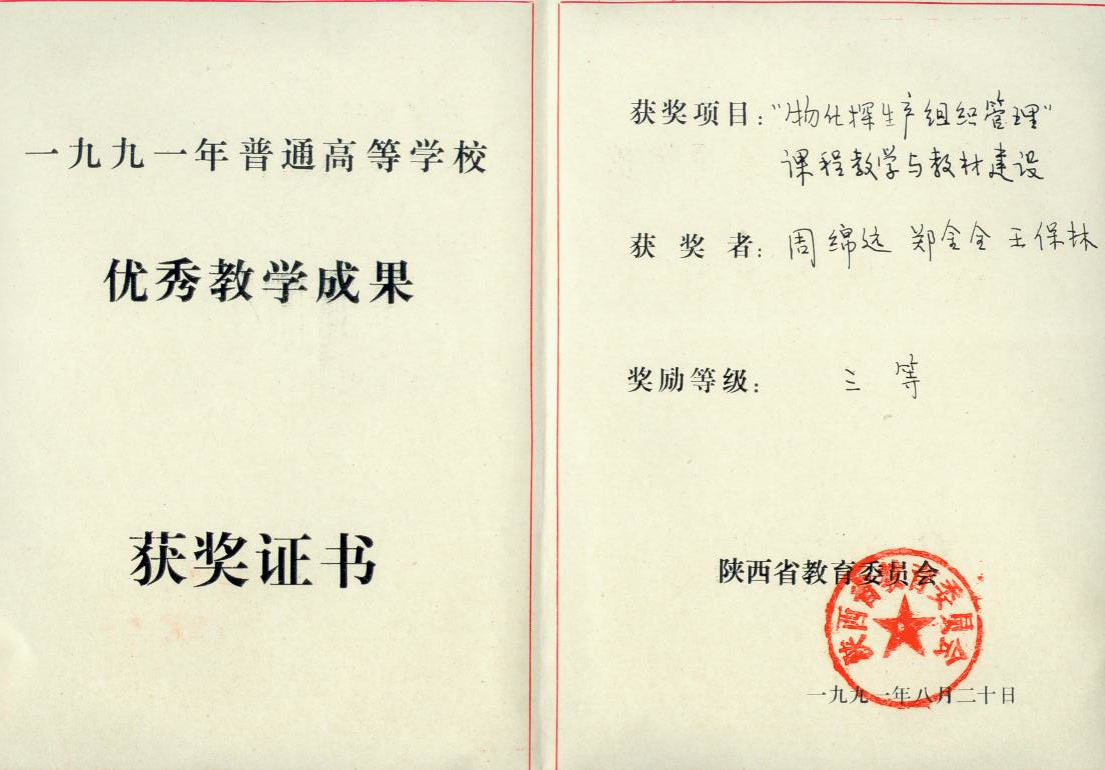 一九九一年普通高等学校
优秀教学成果
获奖证书
获奖项目：“物化探生产组织管理”
课程教学与教材建设
获奖者：周绵远 郑金全 王保林
奖励等级：三等
陕西省教育委员会
陕西省教育委员会
一九九一年八月二十日